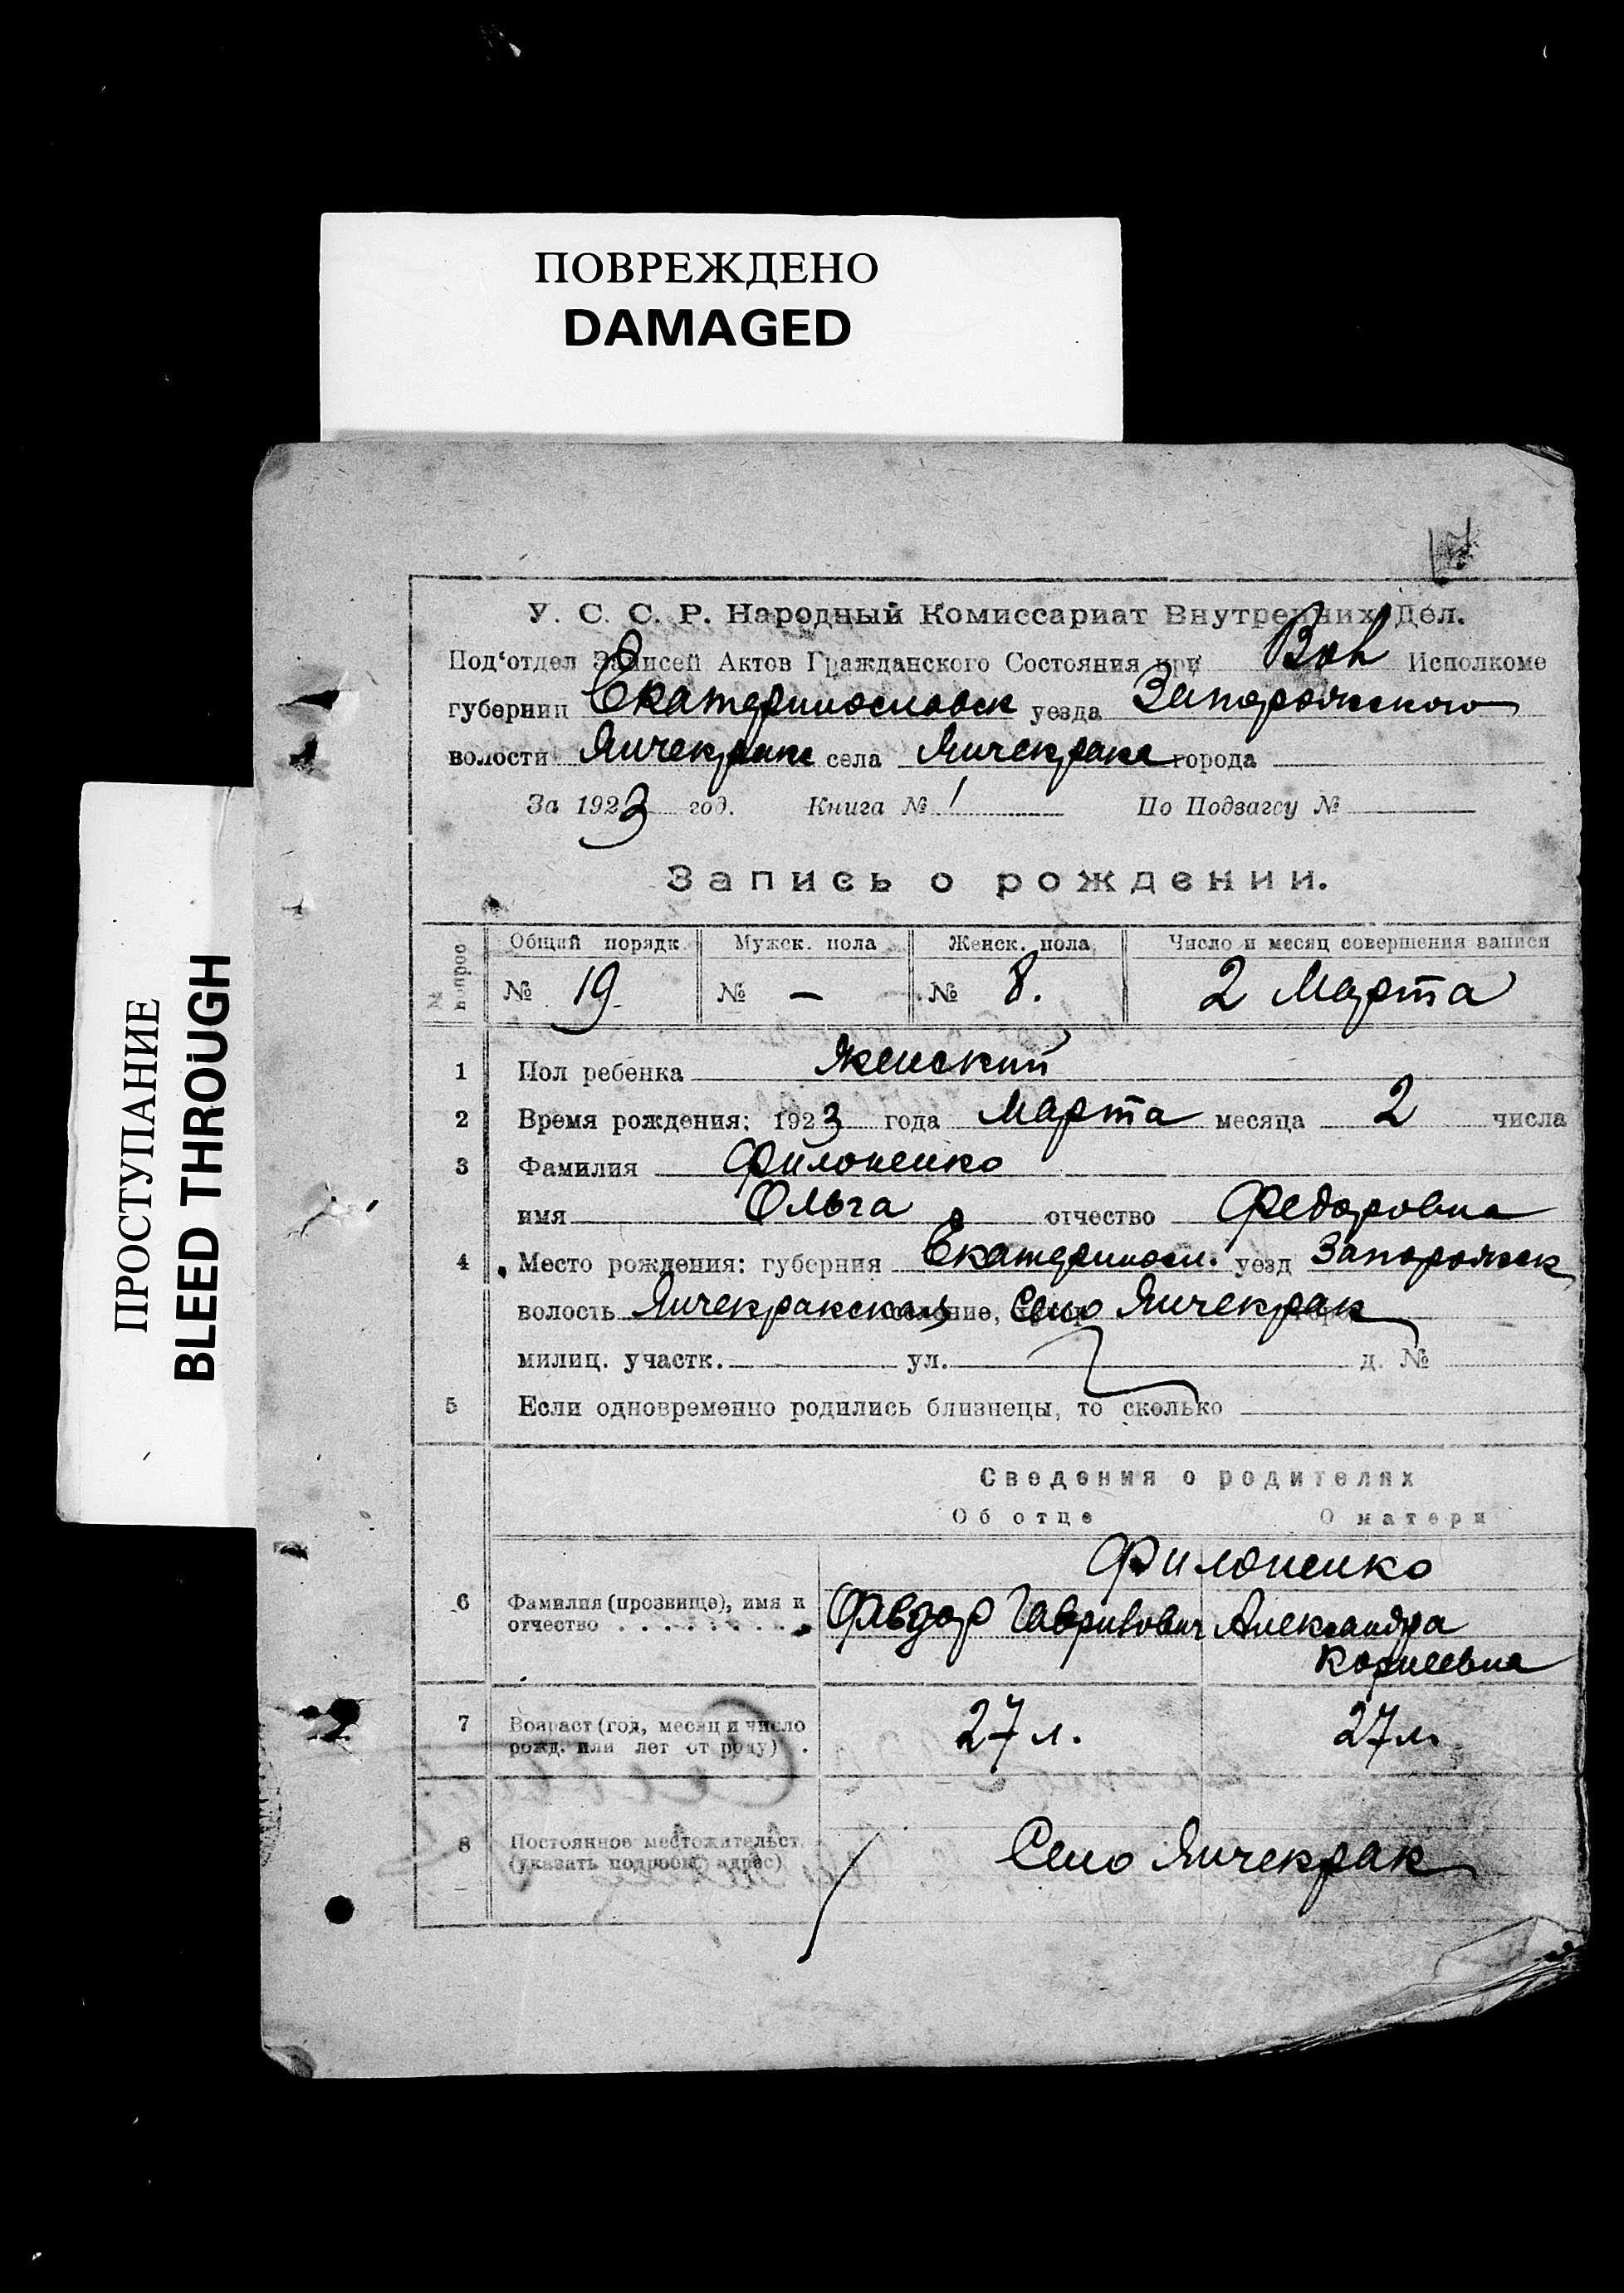 ПОВРЕЖДЕНО
DAMAGED
ПРОСТУПАНИЕ
BLEED THROUGH
У. С. С. Р. Народный Комиссариат Внутренних Дел.
Под‘отдел Записей Актов Гражданского Состояния при Вол Исполкоме
губернии Екатеринославск уезда Запорожского
волости Янчекрак села Янчекрака города
За 1923 год. Книга № 1 По Подзагсу №
Запись о рождении.
Общий порядк. Мужск. пола Женск. пола Число и месяц совершения записи
№ 19. № — № 8. 2 Марта
1 Пол ребенка Женский
2 Время рождения: 1923 года Марта месяца 2 числа
3 Фамилия Филоненко
имя Ольга отчество Федоровна
4 Место рождения: губерния Екатериносл. уезд Запорожск
волость Янчекракская селение, Село Янчекрак
милиц. участк. ул. д. №
5 Если одновременно родились близнецы, то сколько
Сведения о родителях
Об отце О матери
Филоненко
6 Фамилия (прозвище), имя и
отчество
Фёдор Гаврилович Александра
Корнеевна
7 Возраст (год, месяц и число
рожд. или лет от роду)
27 л. 27 л.
8 Постоянное местожительст.
(указать подробн. адрес)
Село Янчекрак